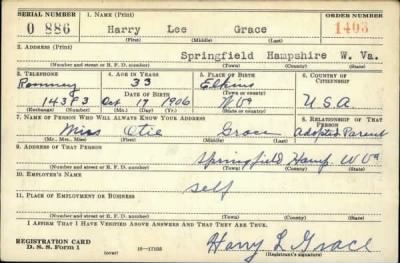 SERIAL NUMBER 1. NAME (Print) ORDER NUMBER
O 886 Harry Lee Grace 1403
(First) (Middle) (Last)
2. ADDRESS (Print)
Springfield Hampshire W. Va.
(Number and street or R. F. D. number) (Town) (County) (State)
3. TELEPHONE 4. AGE IN YEARS 5. PLACE OF BIRTH 6. COUNTRY OF CITIZENSHIP
Romney 33 Elkins
DATE OF BIRTH (Town or county)
143F3 Oct 17 1906 WVa U.S.A.
(Exchange) (Number) (Mo.) (Day) (Yr.) (State or country)
7. NAME OF PERSON WHO WILL ALWAYS KNOW YOUR ADDRESS 8. RELATIONSHIP OF THAT PERSON
Miss Otie Grace adopted Parent
(Mr., Mrs., Miss) (First) (Middle) (Last)
9. ADDRESS OF THAT PERSON
Springfield Hamp WVa
(Number and street or R. F. D. number) (Town) (County) (State)
10. EMPLOYER'S NAME
self
11. PLACE OF EMPLOYMENT OR BUSINESS
(Number and street or R. F. D. number) (Town) (County) (State)
I AFFIRM THAT I HAVE VERIFIED ABOVE ANSWERS AND THAT THEY ARE TRUE.
REGISTRATION CARD
D. S. S. Form 1 (over) Harry L Grace
(Registrant's signature)